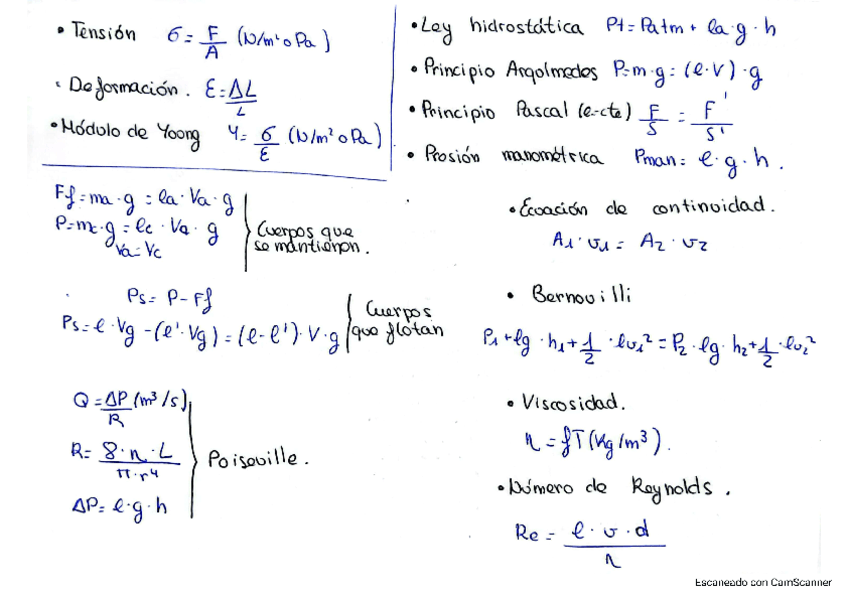 • Tensión σ = F/A (N/m² o Pa)
• Deformación. Ɛ = ΔL/L
• Módulo de Yoong Y = σ/Ɛ (N/m² o Pa)
• Ley hidrostática Pt = Patm + ρa · g · h
• Principio Arqímedes P = m · g = (ρ · V) · g
• Principio Pascal (ρ-cte) F/S = F'/S'
• Presión manométrica Pman = ρ · g · h.
Ff = ma · g = ρa · Va · g
P = mc · g = ρc · Va · g
Va = Vc
Cuerpos que
se mantienen.
Ps = P - Ff
Ps = ρ · Vg - (ρ' · Vg) = (ρ - ρ') · V · g
Cuerpos
que flotan
Q = ΔP/R (m³/s)
R = 8 · η · L / π · r⁴
ΔP = ρ · g · h
Poiseuille.
• Ecuación de continuidad.
A1 · v1 = A2 · v2
• Bernouilli
P1 + ρg · h1 + 1/2 · ρv1² = P2 · ρg · h2 + 1/2 · ρv2²
• Viscosidad.
η = fT (Kg/m³).
• Número de Reynolds.
Re = ρ · v · d / η
Escaneado con CamScanner